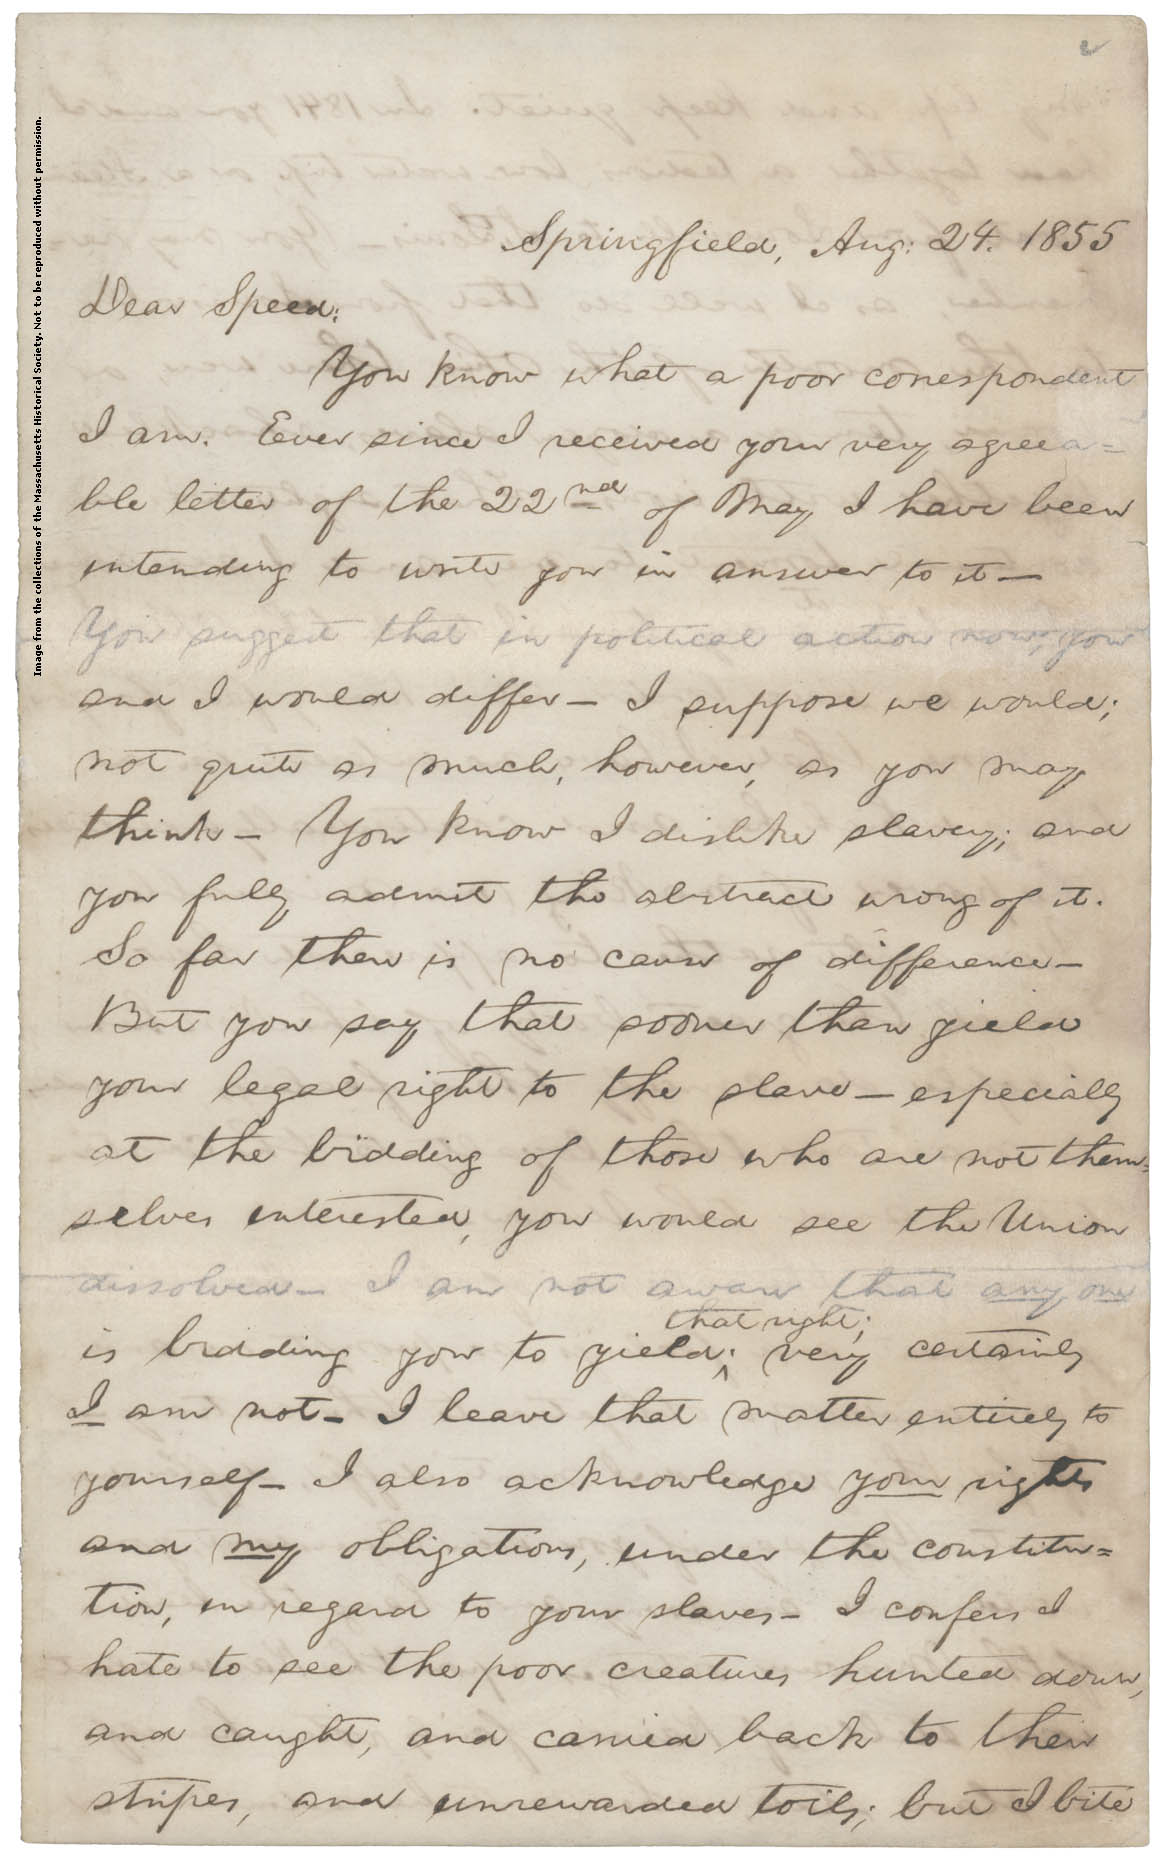 Springfield, Aug: 24. 1855
Dear Speed:
You know what a poor correspondent
I am. Ever since I received your very agreea=
ble letter of the 22nd of May I have been
intending to write you in answer to it—
You suggest that in political action now, you
and I would differ— I suppose we would;
not quite as much, however, as you may
think— You know I dislike slavery; and
you fully admit the abstract wrong of it.
So far there is no cause of difference—
But you say that sooner than yield
your legal right to the slave— especially
at the bidding of those who are not them=
selves interested, you would see the Union
dissolved— I am not aware that any one
that right;
is bidding you to yield; ‸ very certainly
I am not— I leave that matter entirely to
yourself— I also acknowledge your rights
and my obligations, under the constitu=
tion, in regard to your slaves— I confess I
hate to see the poor creatures hunted down,
and caught, and carried back to their
stripes, and unrewarded toils; but I bite
Image from the collections of the Massachusetts Historical Society. Not to be reproduced without permission.